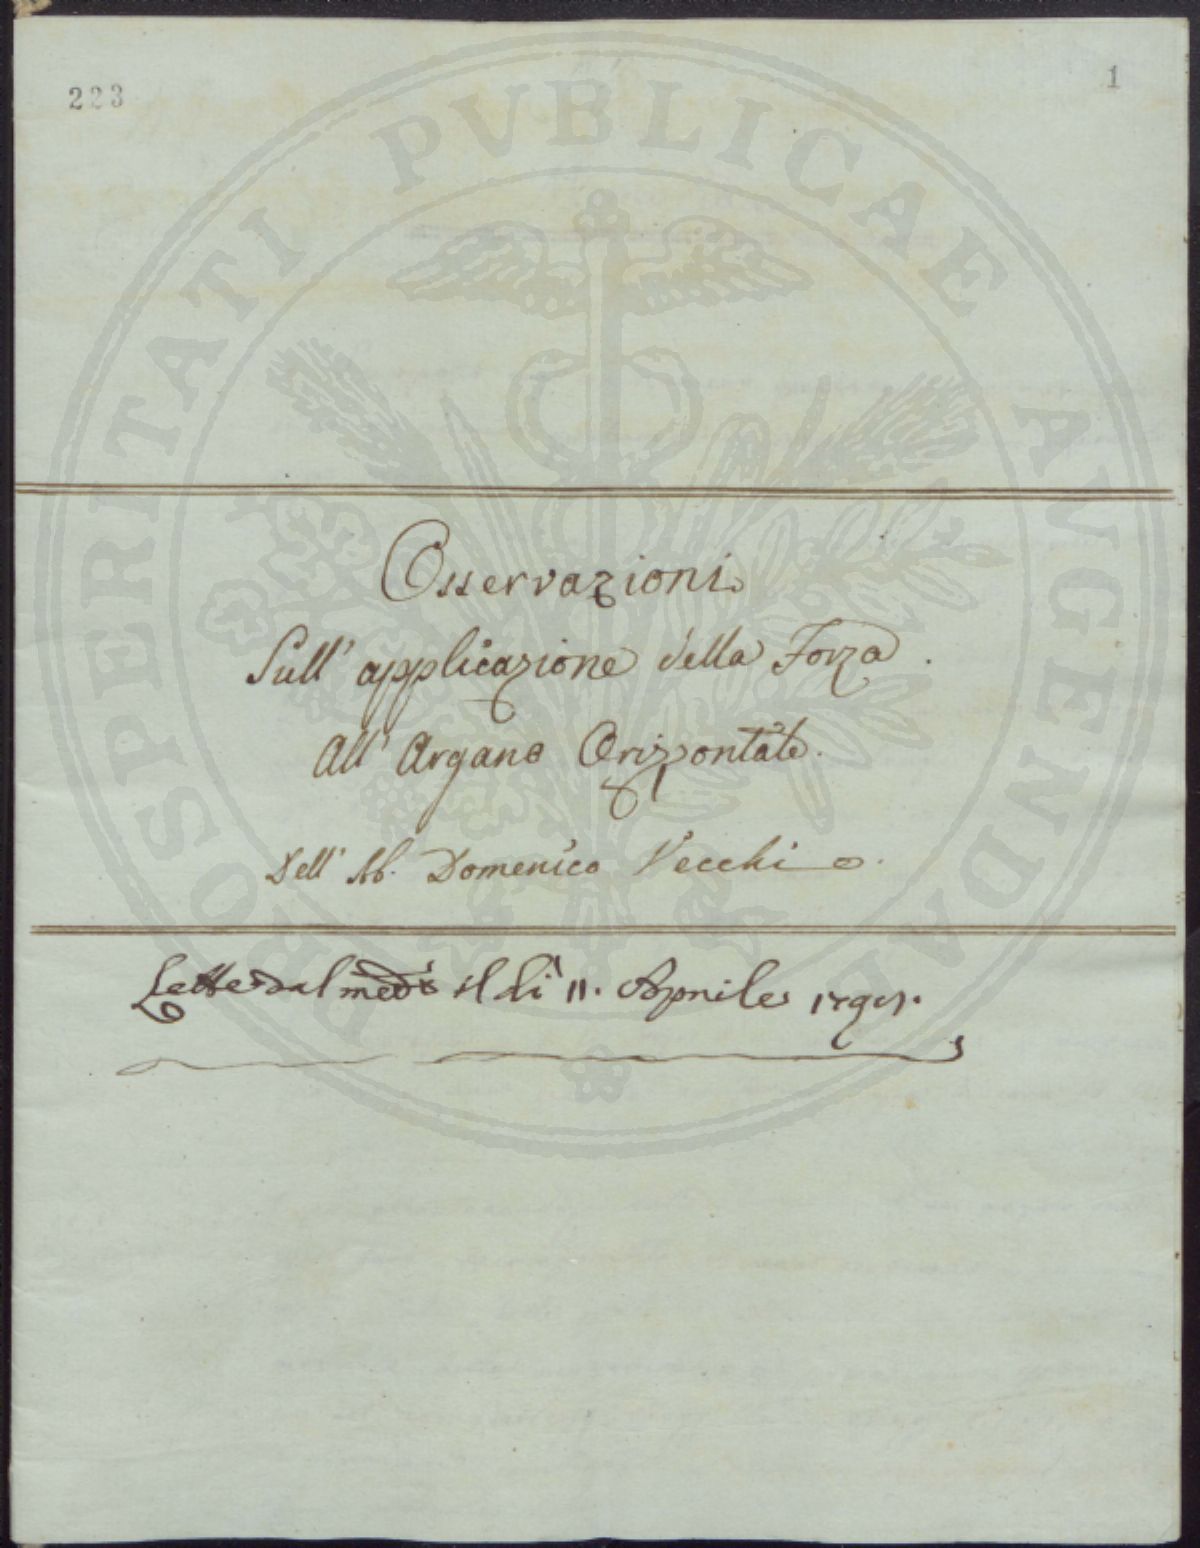 223
1
PROSPERITATI PVBLICAE AVGENDAE
Osservazioni
Sull' applicazione della Forza.
All' Argano Orizzontale.
Dell' Ab. Domenico Vecchi
Lette dal med.o il dì 11. Aprile